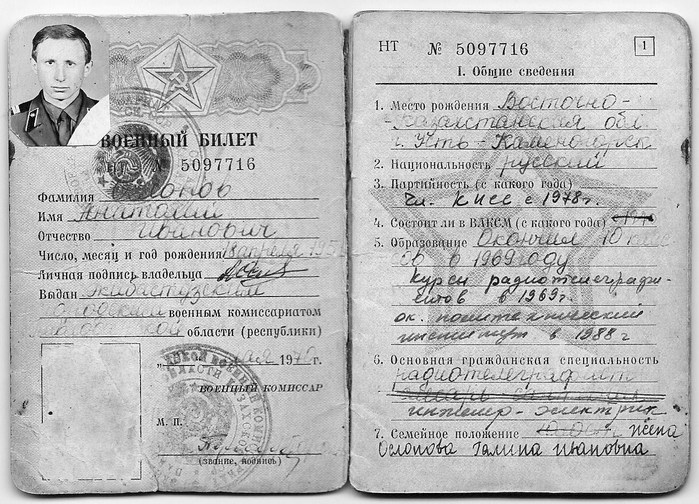 ВОЕННЫЙ БИЛЕТ
НТ № 5097716
Фамилия
Имя Анатолий
Отчество Иванович
Число, месяц и год рождения 18 апреля
Личная подпись владельца
Выдан Экибастузским
военным комиссариатом
области (республики)
мая 197 г.
ВОЕННЫЙ КОМИССАР
М. П.
(звание, подпись)
НТ № 5097716
1
I. Общие сведения
1. Место рождения Восточно-
Казахстанская обл
г. Усть-Каменогорск
2. Национальность русский
3. Партийность (с какого года)
Чл. КПСС с 1978г.
4. Состоит ли в ВЛКСМ (с какого года)
5. Образование Окончил 10 клас
ов в 1969 году
курсы радиотелеграфи-
стов в 1969г.
ок. политехнический
институт в 1988 г
6. Основная гражданская специальность
радиотелеграфист
инженер-электрик
7. Семейное положение жена
Ослопова Галина Ивановна